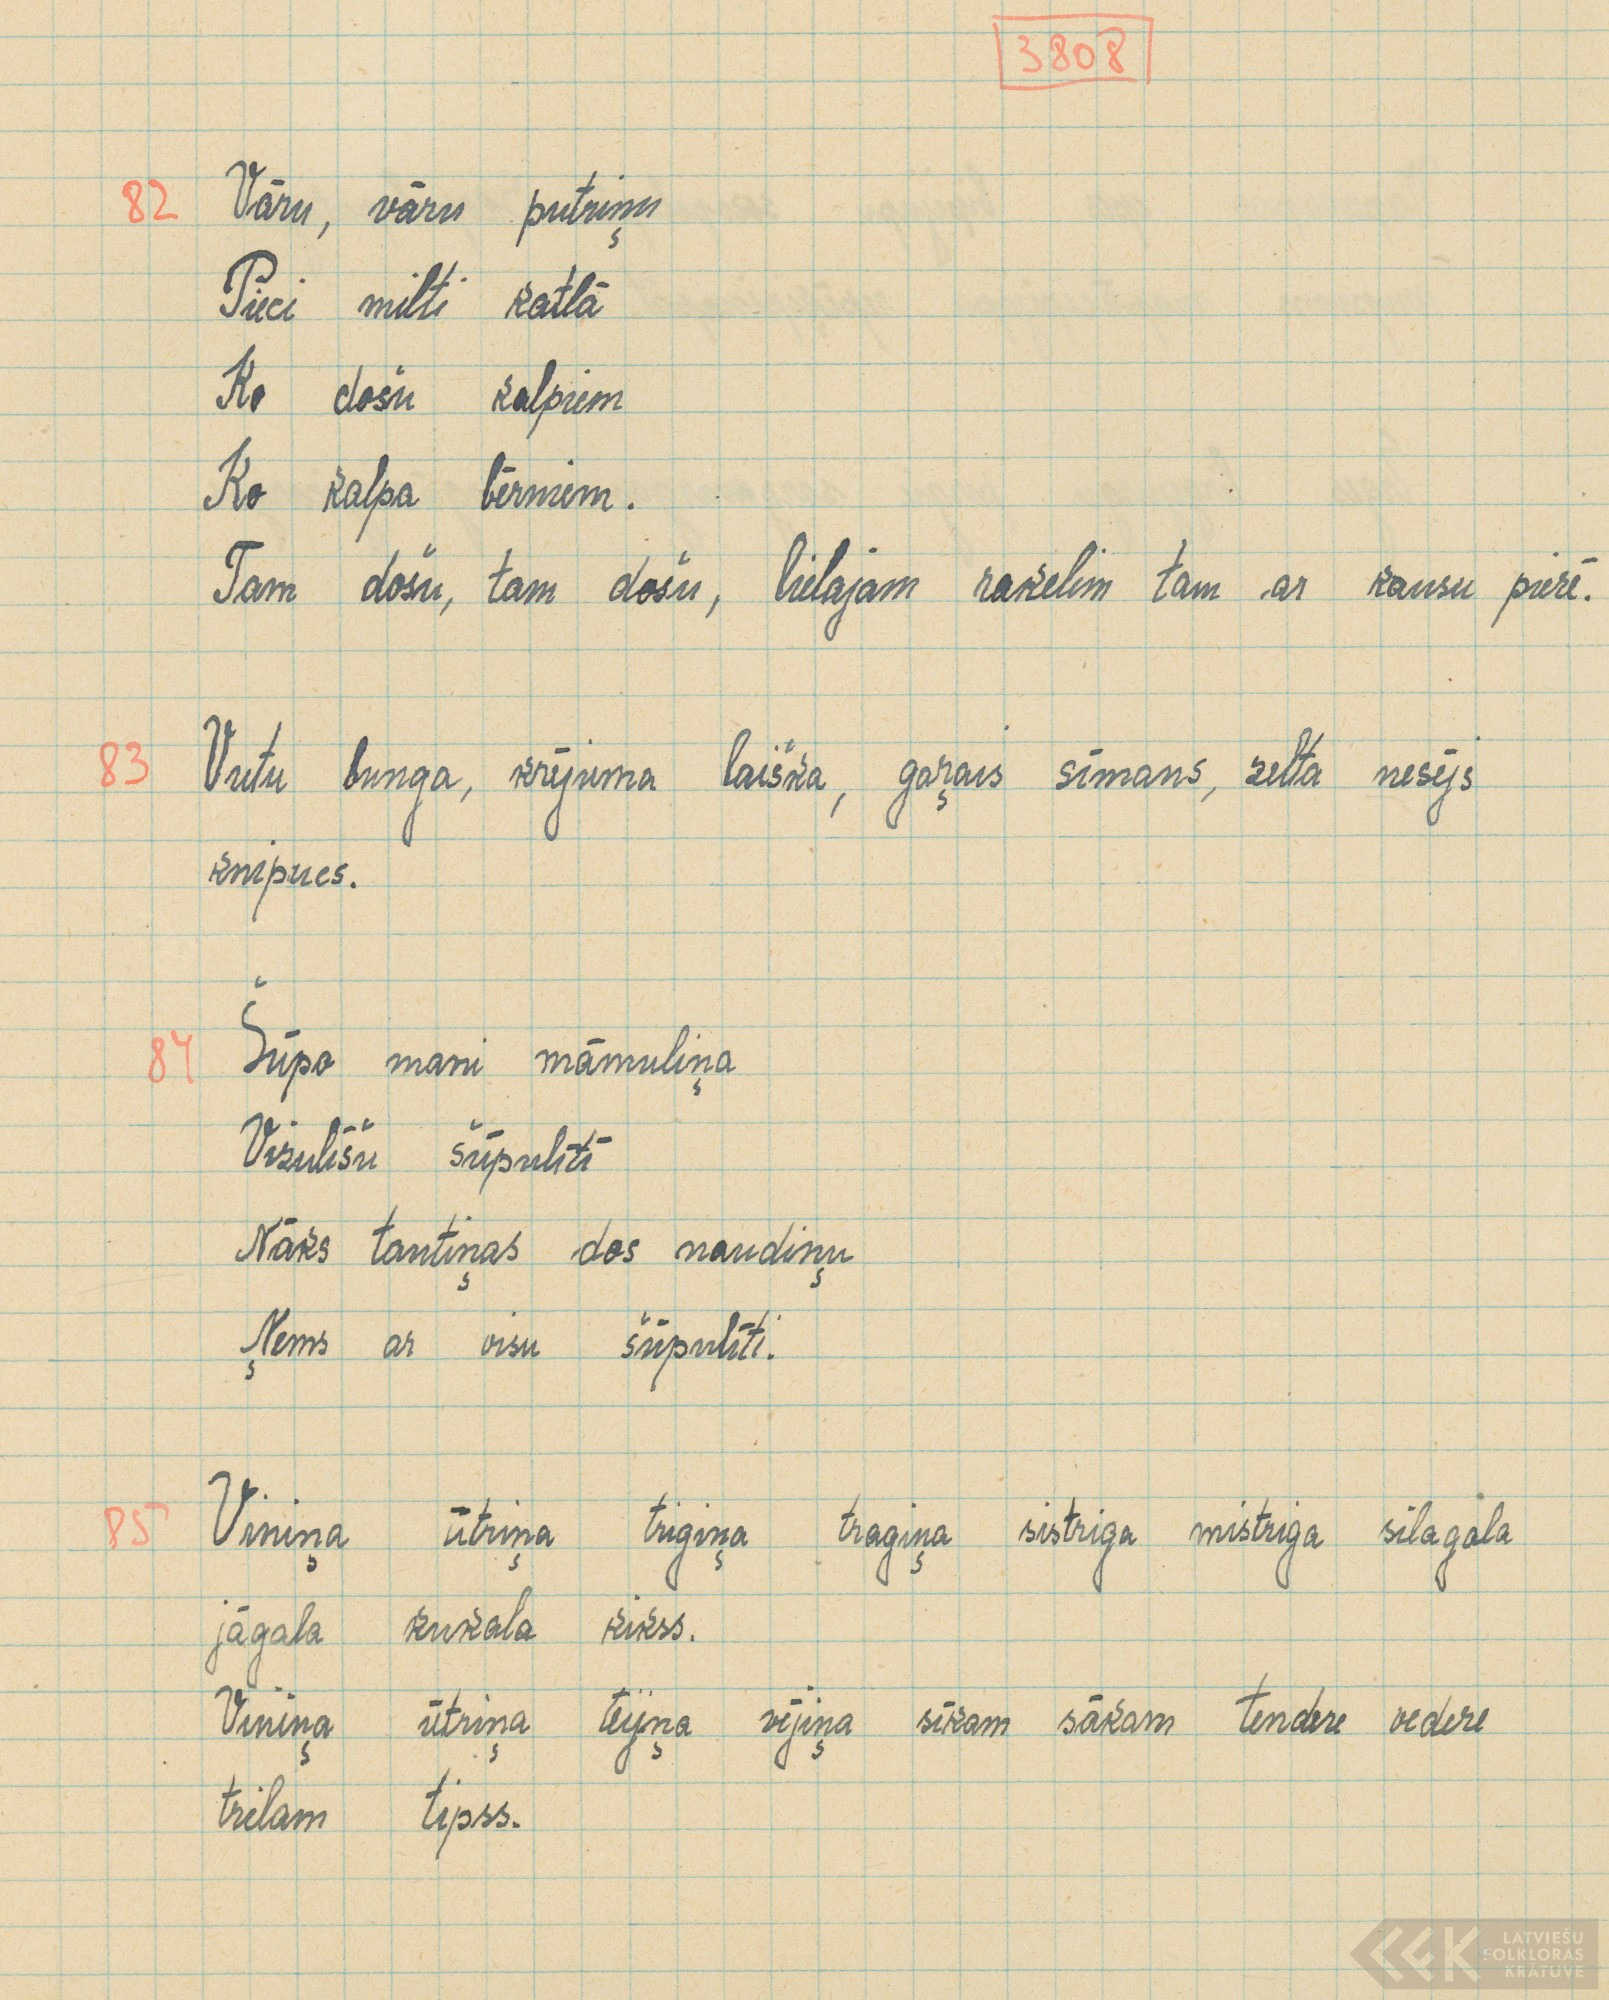 3808
82 Vāru, vāru putriņu
Pieci milti katlā
Ko došu kalpiem
Ko kalpa bērniem.
Tam došu, tam došu, lielajam rakelim tam ar kausu pierē.
83 Vutu bunga, krējuma laiška, gaŗais sīmans, zelta nesējs
knipucs.
84 Šūpo mani māmuliņa
Vizulīšu šūpulītī
Nāks tantiņas dos naudiņu
Ņems ar visu šūpulīti.
85 Viniņa ūtriņa trigiņa tragiņa sistriga mistriga silagala
jāgala kukala kikss.
Viniņa ūtriņa teijņa vējiņa sīkam sākam tendere vedere
trilam tipss.
LATVIEŠU
FOLKLORAS
KRĀTUVE